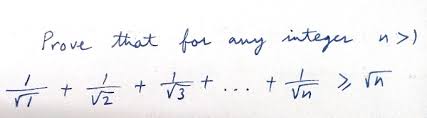 Prove that for any integer n > 1
1/√1 + 1/√2 + 1/√3 + ... + 1/√n ⩾ √n